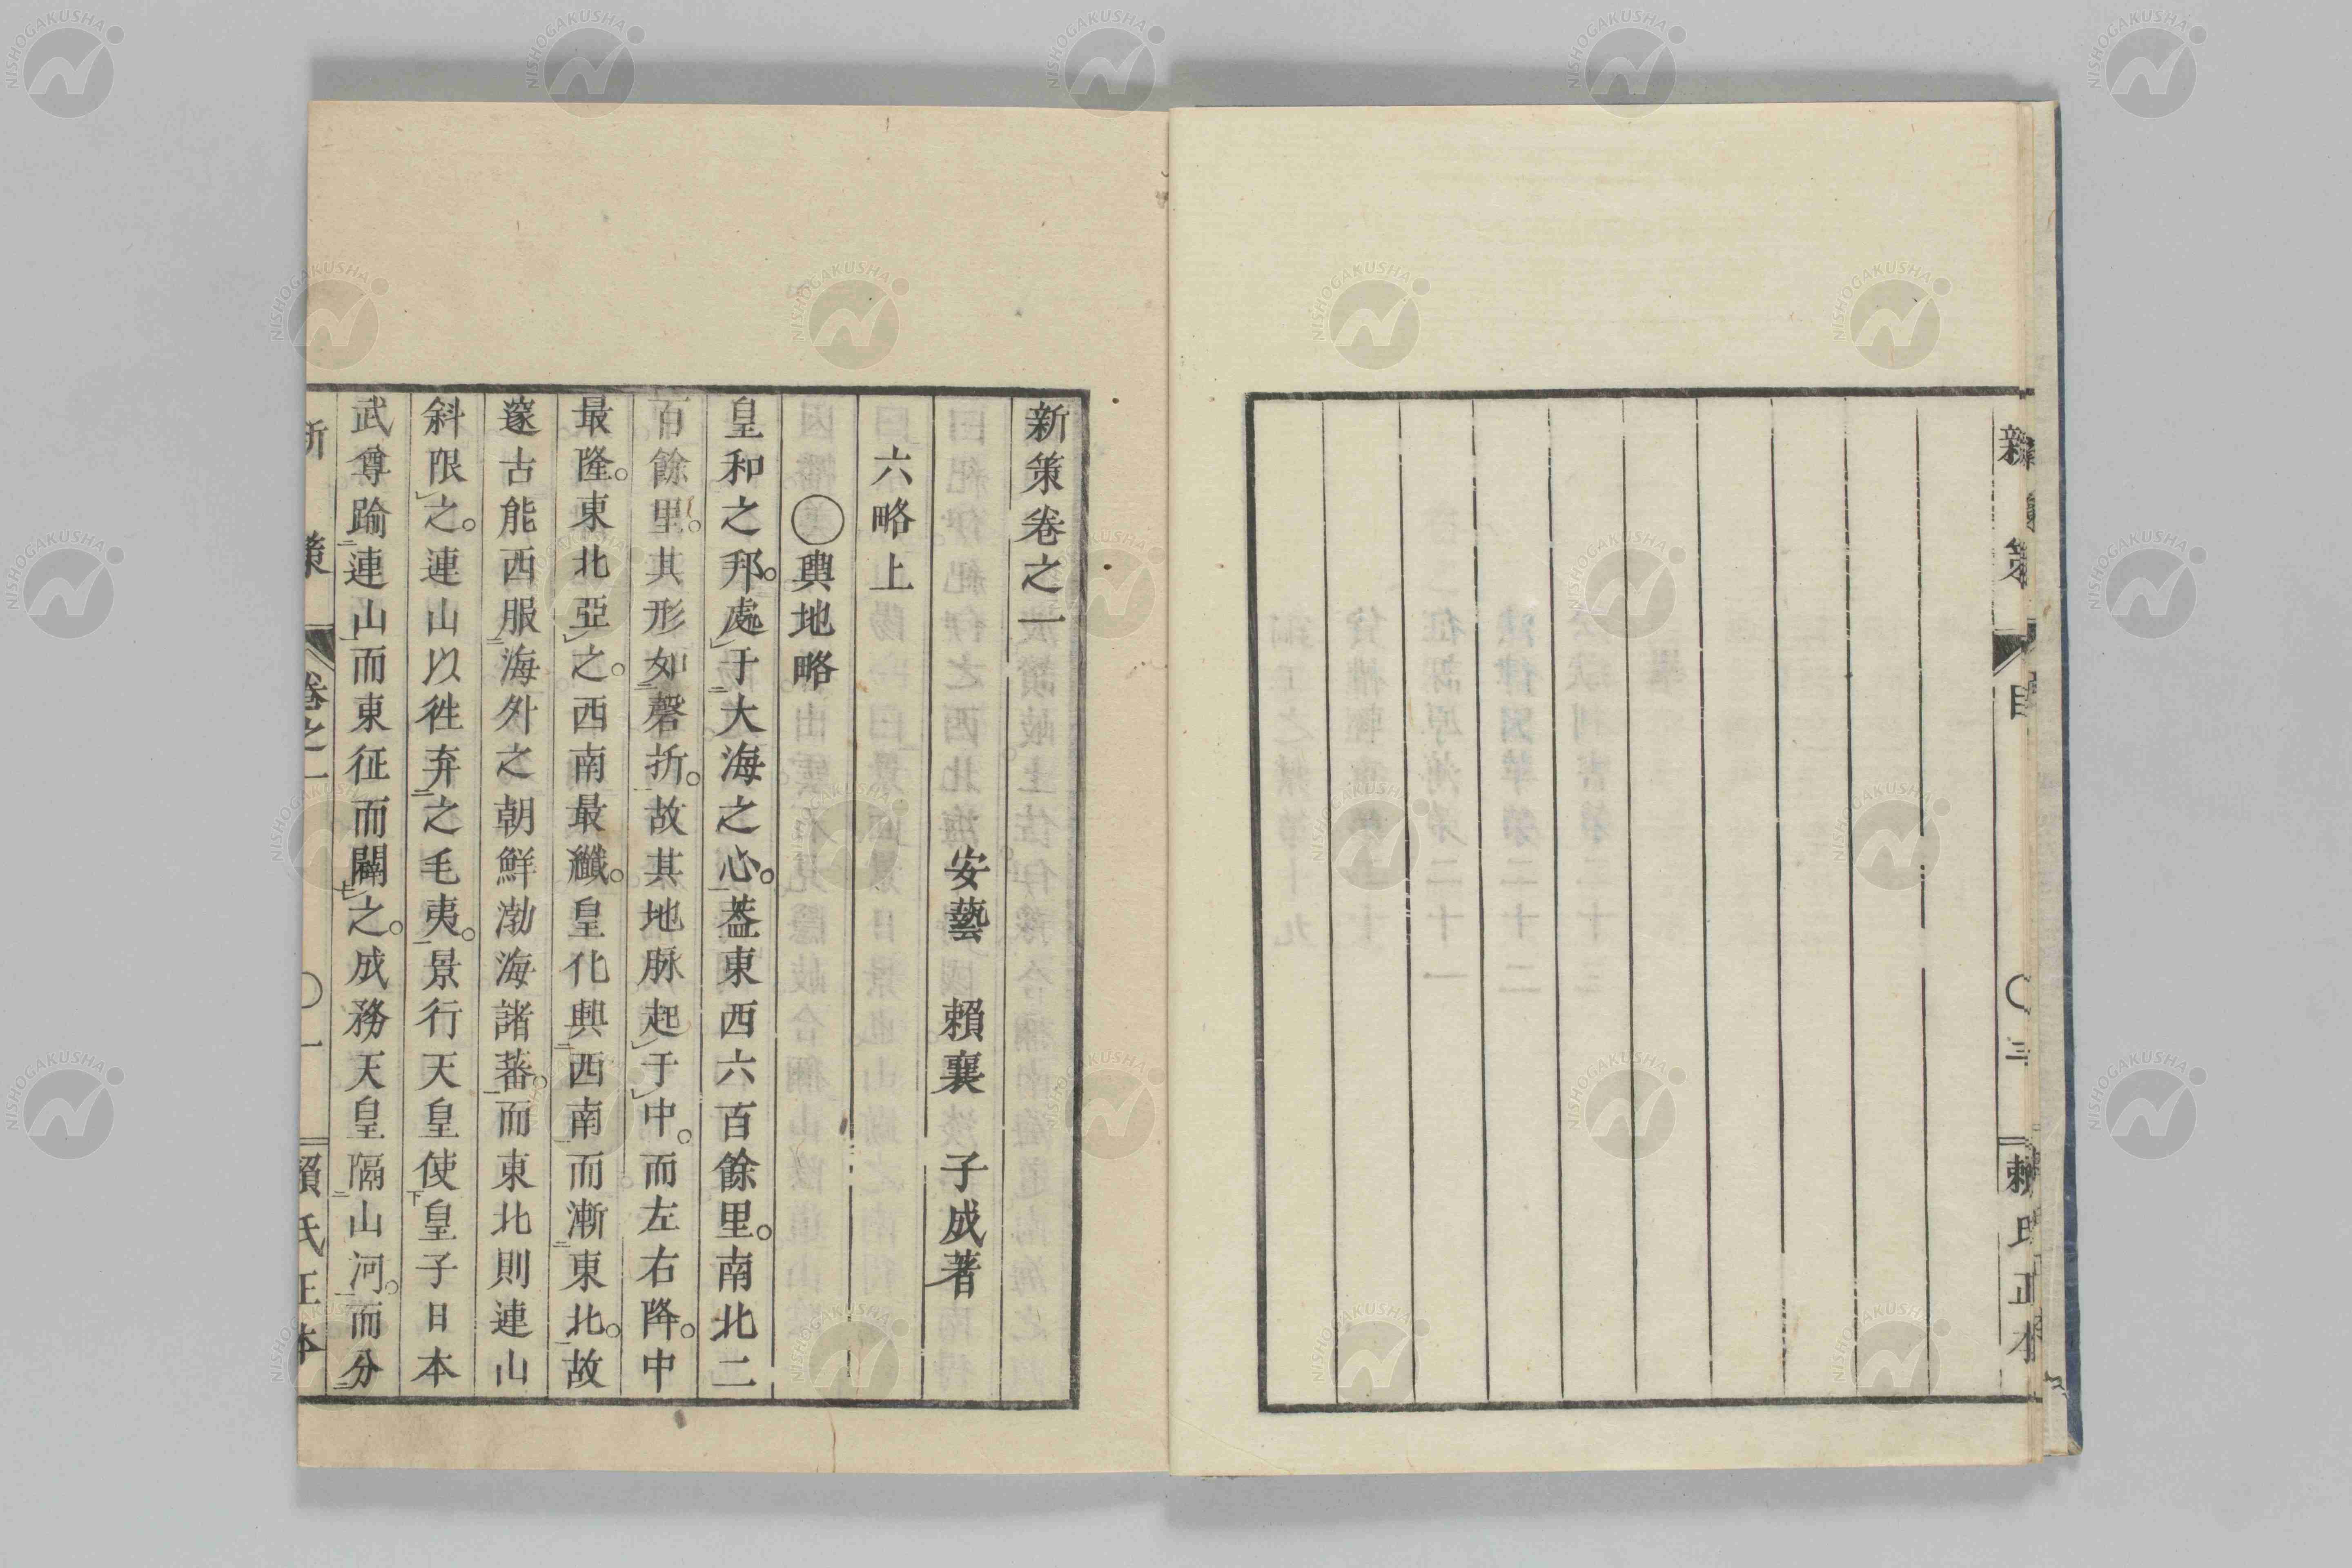 新策
目
〇三
賴氏正本
新策卷之一
安藝 賴襄 子成著
六略上
〇輿地略
皇和之邦。處于大海之心。葢東西六百餘里。南北二
百餘里。其形如磬折。故其地脈起于中。而左右降。中
最隆。東北亞之。西南最纖。皇化興西南而漸東北。故
邃古能西服海外之朝鮮渤海諸蕃。而東北則連山
斜限之。連山以徃弃之毛夷。景行天皇使皇子日本
武尊踰連山而東征而闢之。成務天皇隔山河。而分
新策
卷之一
〇一
賴氏正本
NISHOGAKUSHA